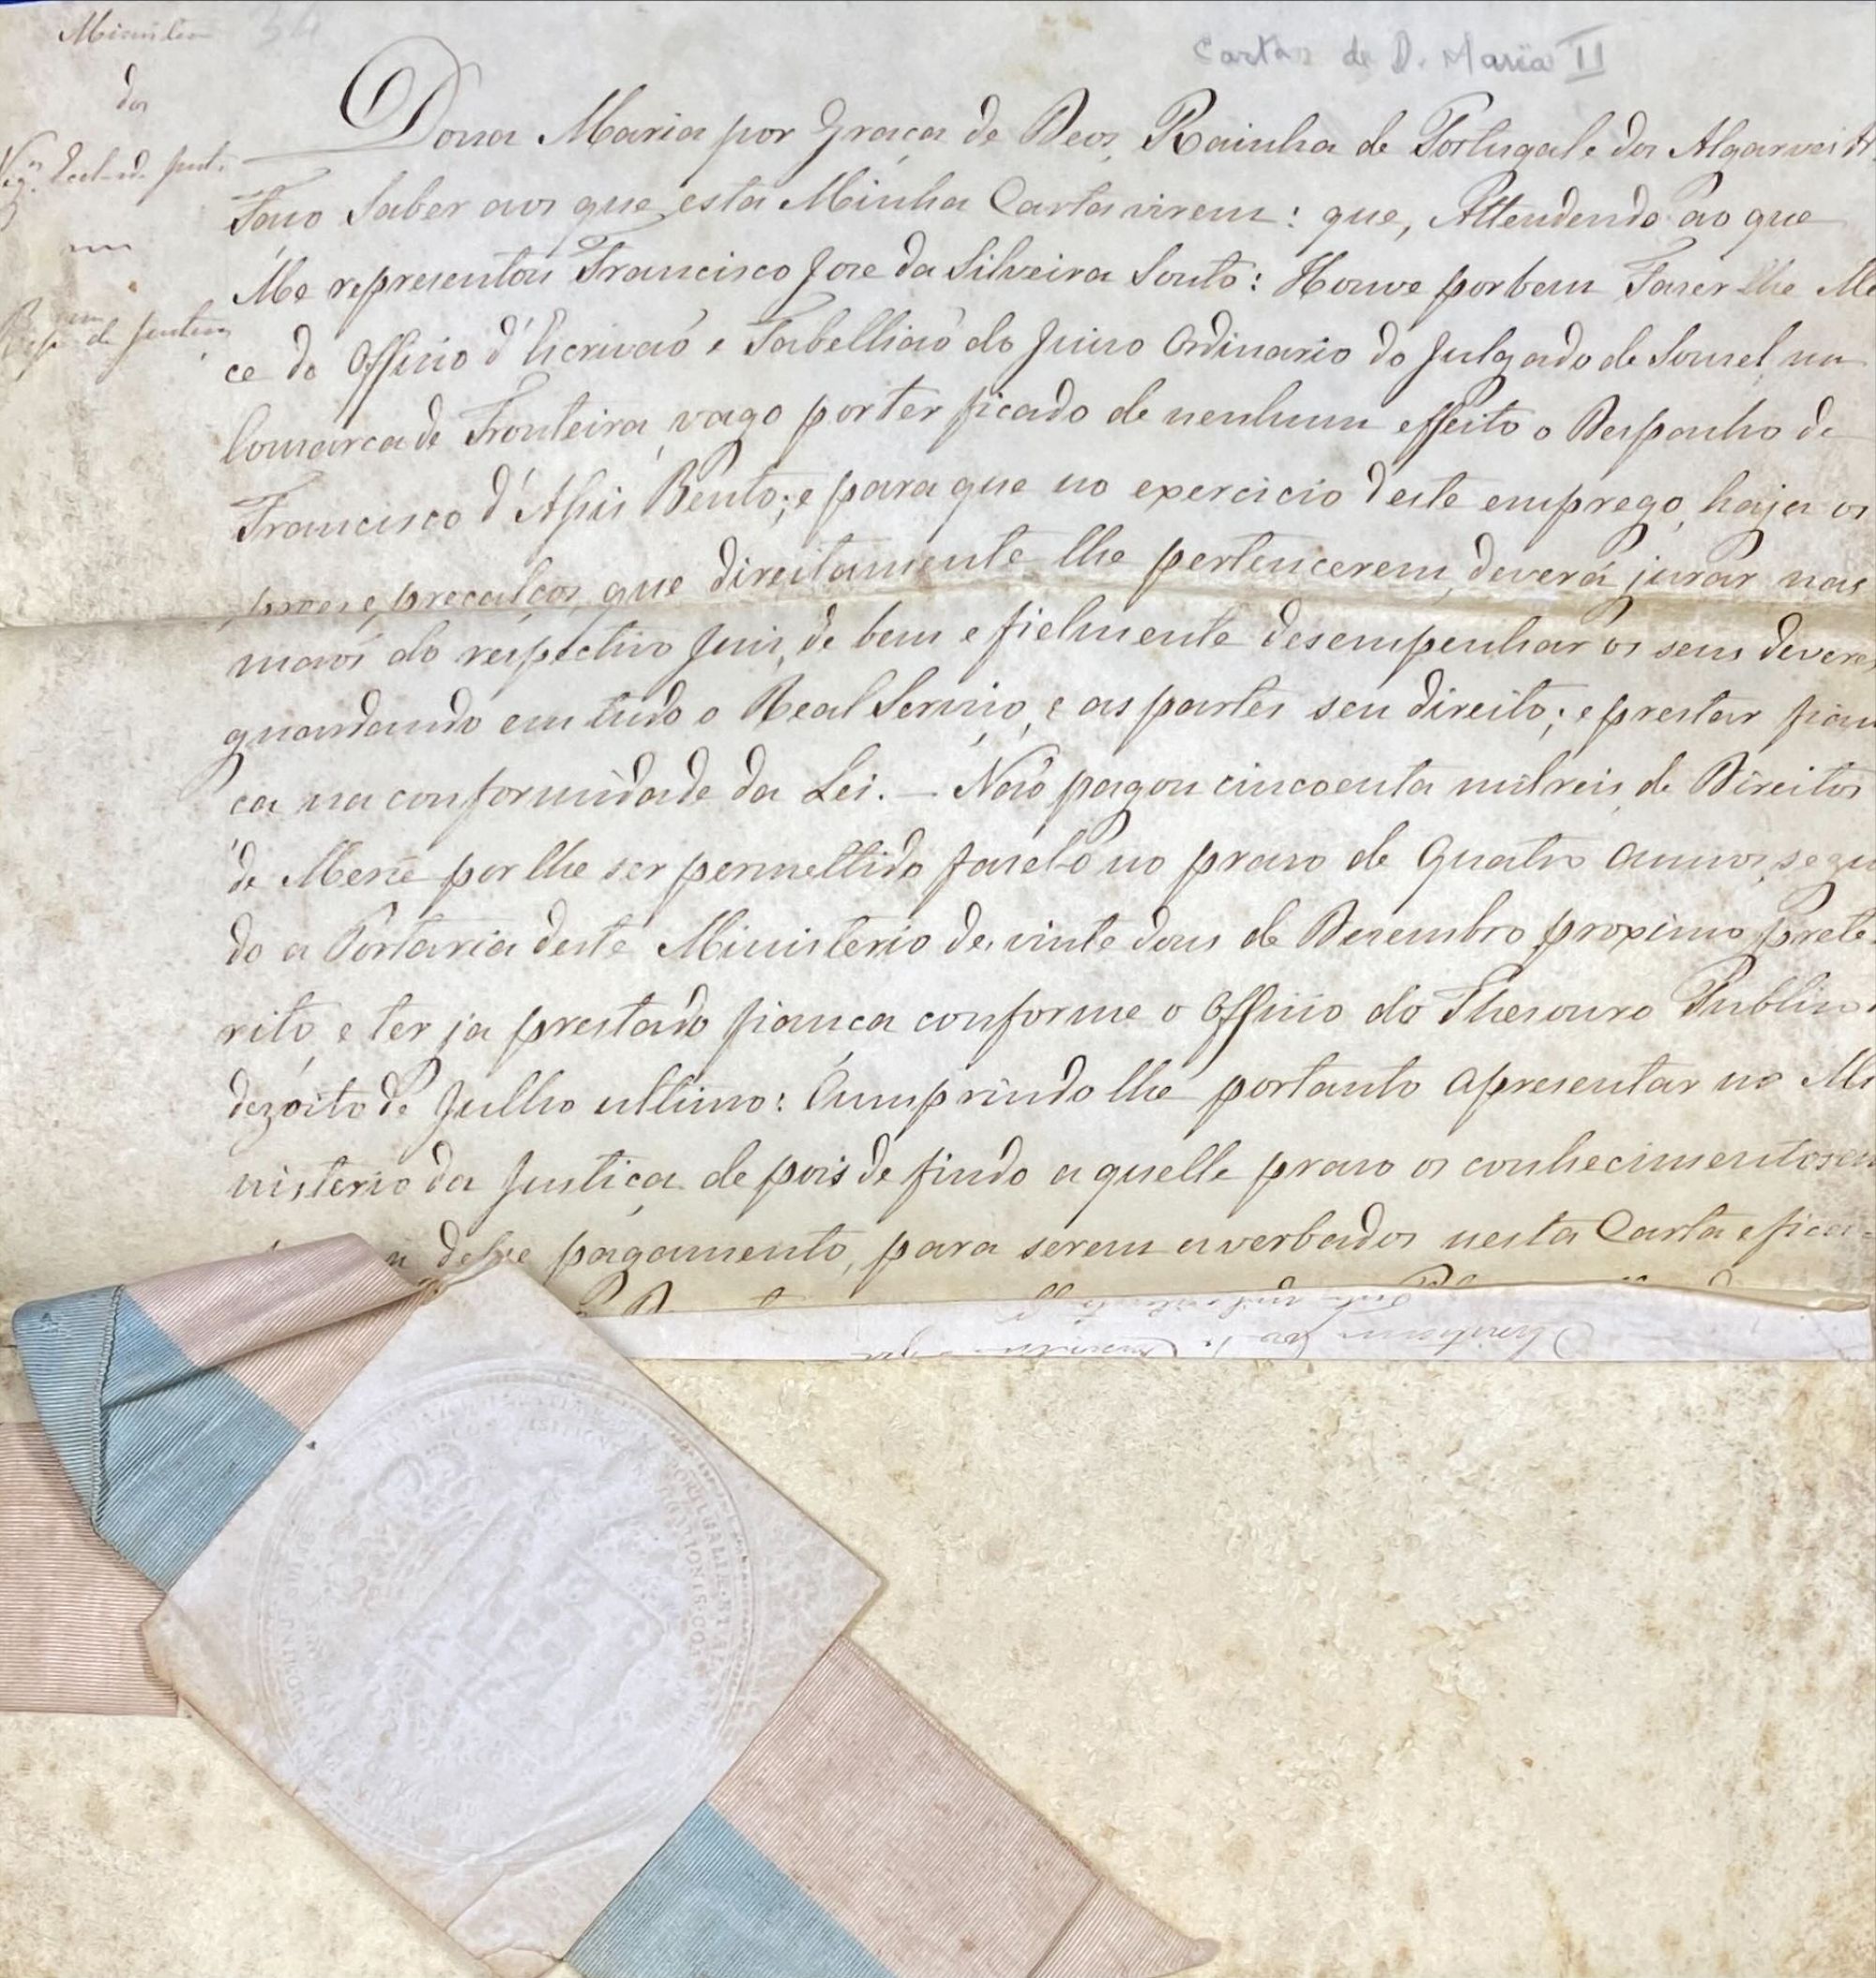 Carta de D. Maria II
34
Ministerio
dos
Neg.os Eccl. e d. Just.
Rep.am de Justiça
Dona Maria por Graça de Deos, Rainha de Portugal e dos Algarves etc
Faço Saber aos que esta Minha Carta virem: que, Attendendo ao que
Me representou Francisco José da Silveira Souto: Houve por bem Fazer-lhe Mer
ce do Officio d'Escrivaõ e Tabelliaõ do Juizo Ordinario do Julgado de Souzel na
Comarca de Fronteira, vago por ter ficado de nenhum effeito o Despacho de
Francisco d'Assis Bento; e para que no exercicio deste emprego, haja os
proes e precalços, que direitamente lhe pertencerem, deverá jurar nas
maõs do respectivo Juiz, de bem e fielmente desempenhar os seus devere
guardando em tudo o Real Serviço, e as partes seu direito; e prestar fian
ça na conformidade da Lei. — Naõ pagou cincoenta mil reis, de Direitos
de Mercê por lhe ser permettido fazel-o no praso de quatro annos, segu
do a Portaria deste Ministerio de vinte dous de Dezembro proximo prete
rito, e ter ja prestado fiança conforme o Officio do Thesouro Publico
dezoito de Julho ultimo: Cumprindo lhe portanto apresentar no Mi
nisterio da Justiça depois de findo aquelle praso os conhecimentos em
desse pagamento, para serem averbados nesta Carta e fican